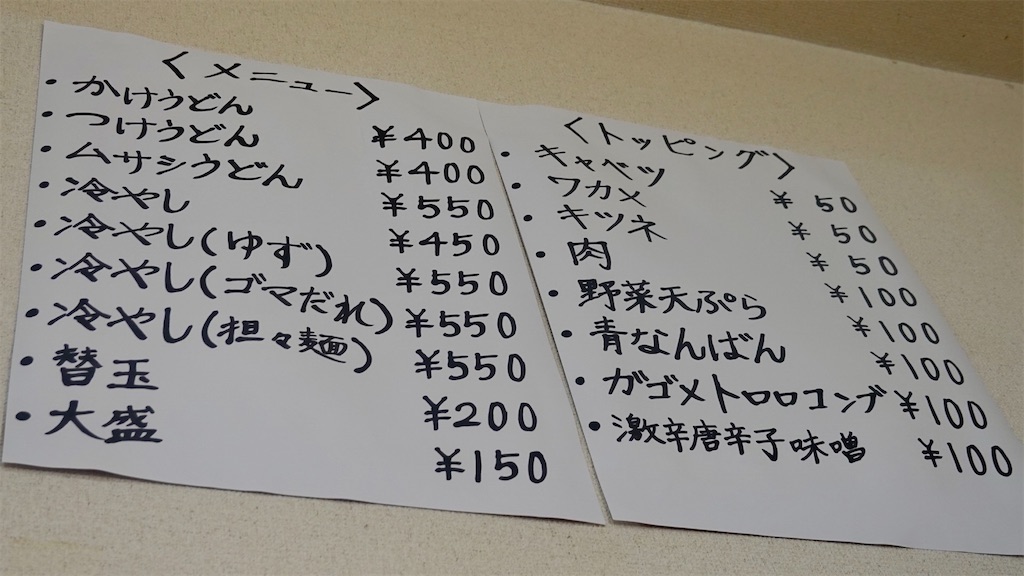 <メニュー>
・かけうどん ¥400
・つけうどん ¥400
・ムサシうどん ¥550
・冷やし ¥450
・冷やし(ゆず) ¥550
・冷やし(ゴマだれ) ¥550
・冷やし(担々麺) ¥550
・替玉 ¥200
・大盛 ¥150
<トッピング>
・キャベツ ¥50
・ワカメ ¥50
・キツネ ¥50
・肉 ¥100
・野菜天ぷら ¥100
・青なんばん ¥100
・ガゴメトロロコンブ ¥100
・激辛唐辛子味噌 ¥100